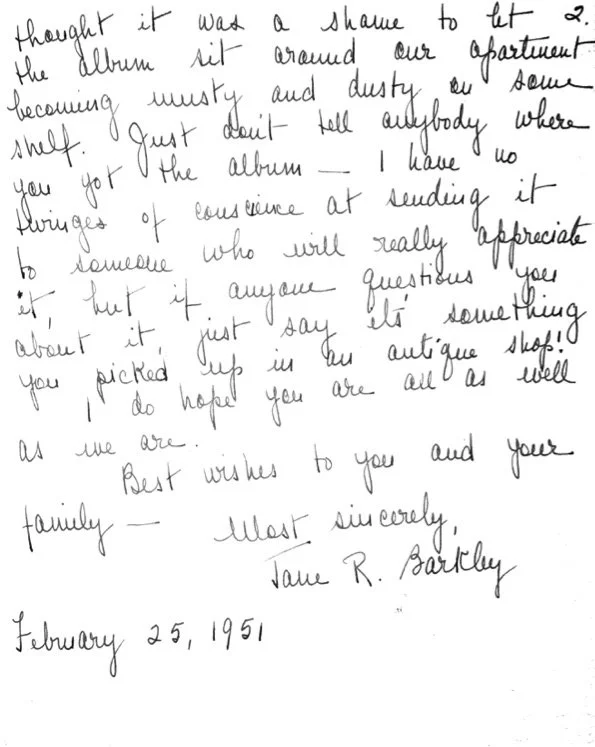 2.
thought it was a shame to let
the album sit around our apartment
becoming musty and dusty on some
shelf. Just don't tell anybody where
you got the album — I have no
twinges of conscience at sending it
to someone who will really appreciate
it, but if anyone questions you
about it, just say it's something
you picked up in an antique shop!
I do hope you are all as well
as we are.
Best wishes to you and your
family —
Most sincerely,
Jane R. Barkley
February 25, 1951